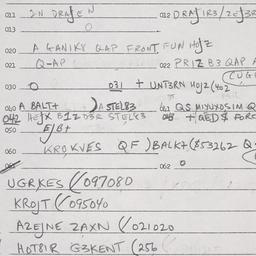 011 IN DRAFEN 012 DRAFIR3/2EF3R
013 0
020 A GANIKY QAP FRONT FUN HOJZ
021 Q-AP 022 PRIZ B3 QAP A
030 0 031 + UNT3RN HOJZ (402
040 A BALT+ ) A STEL83 041 QS MIYUXOSIM Q
042 HEJX B1Z D3R STEL83 + AEDS FORC
050 EJB+
060 KROKVES QF ) BALK+ (853262 Q
062 0
UGRKES (/097080
KROJT (/095040
AZEJNE ZAXN (/021020
HOT8IR G3KENT (256